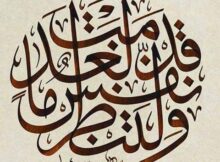 ولتنظر نفس ما قدمت لغد